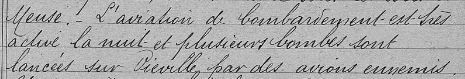 Meuse. - L'aviation de bombardement est très
active la nuit et plusieurs bombes sont
lancées sur Viéville, par des avions ennemis